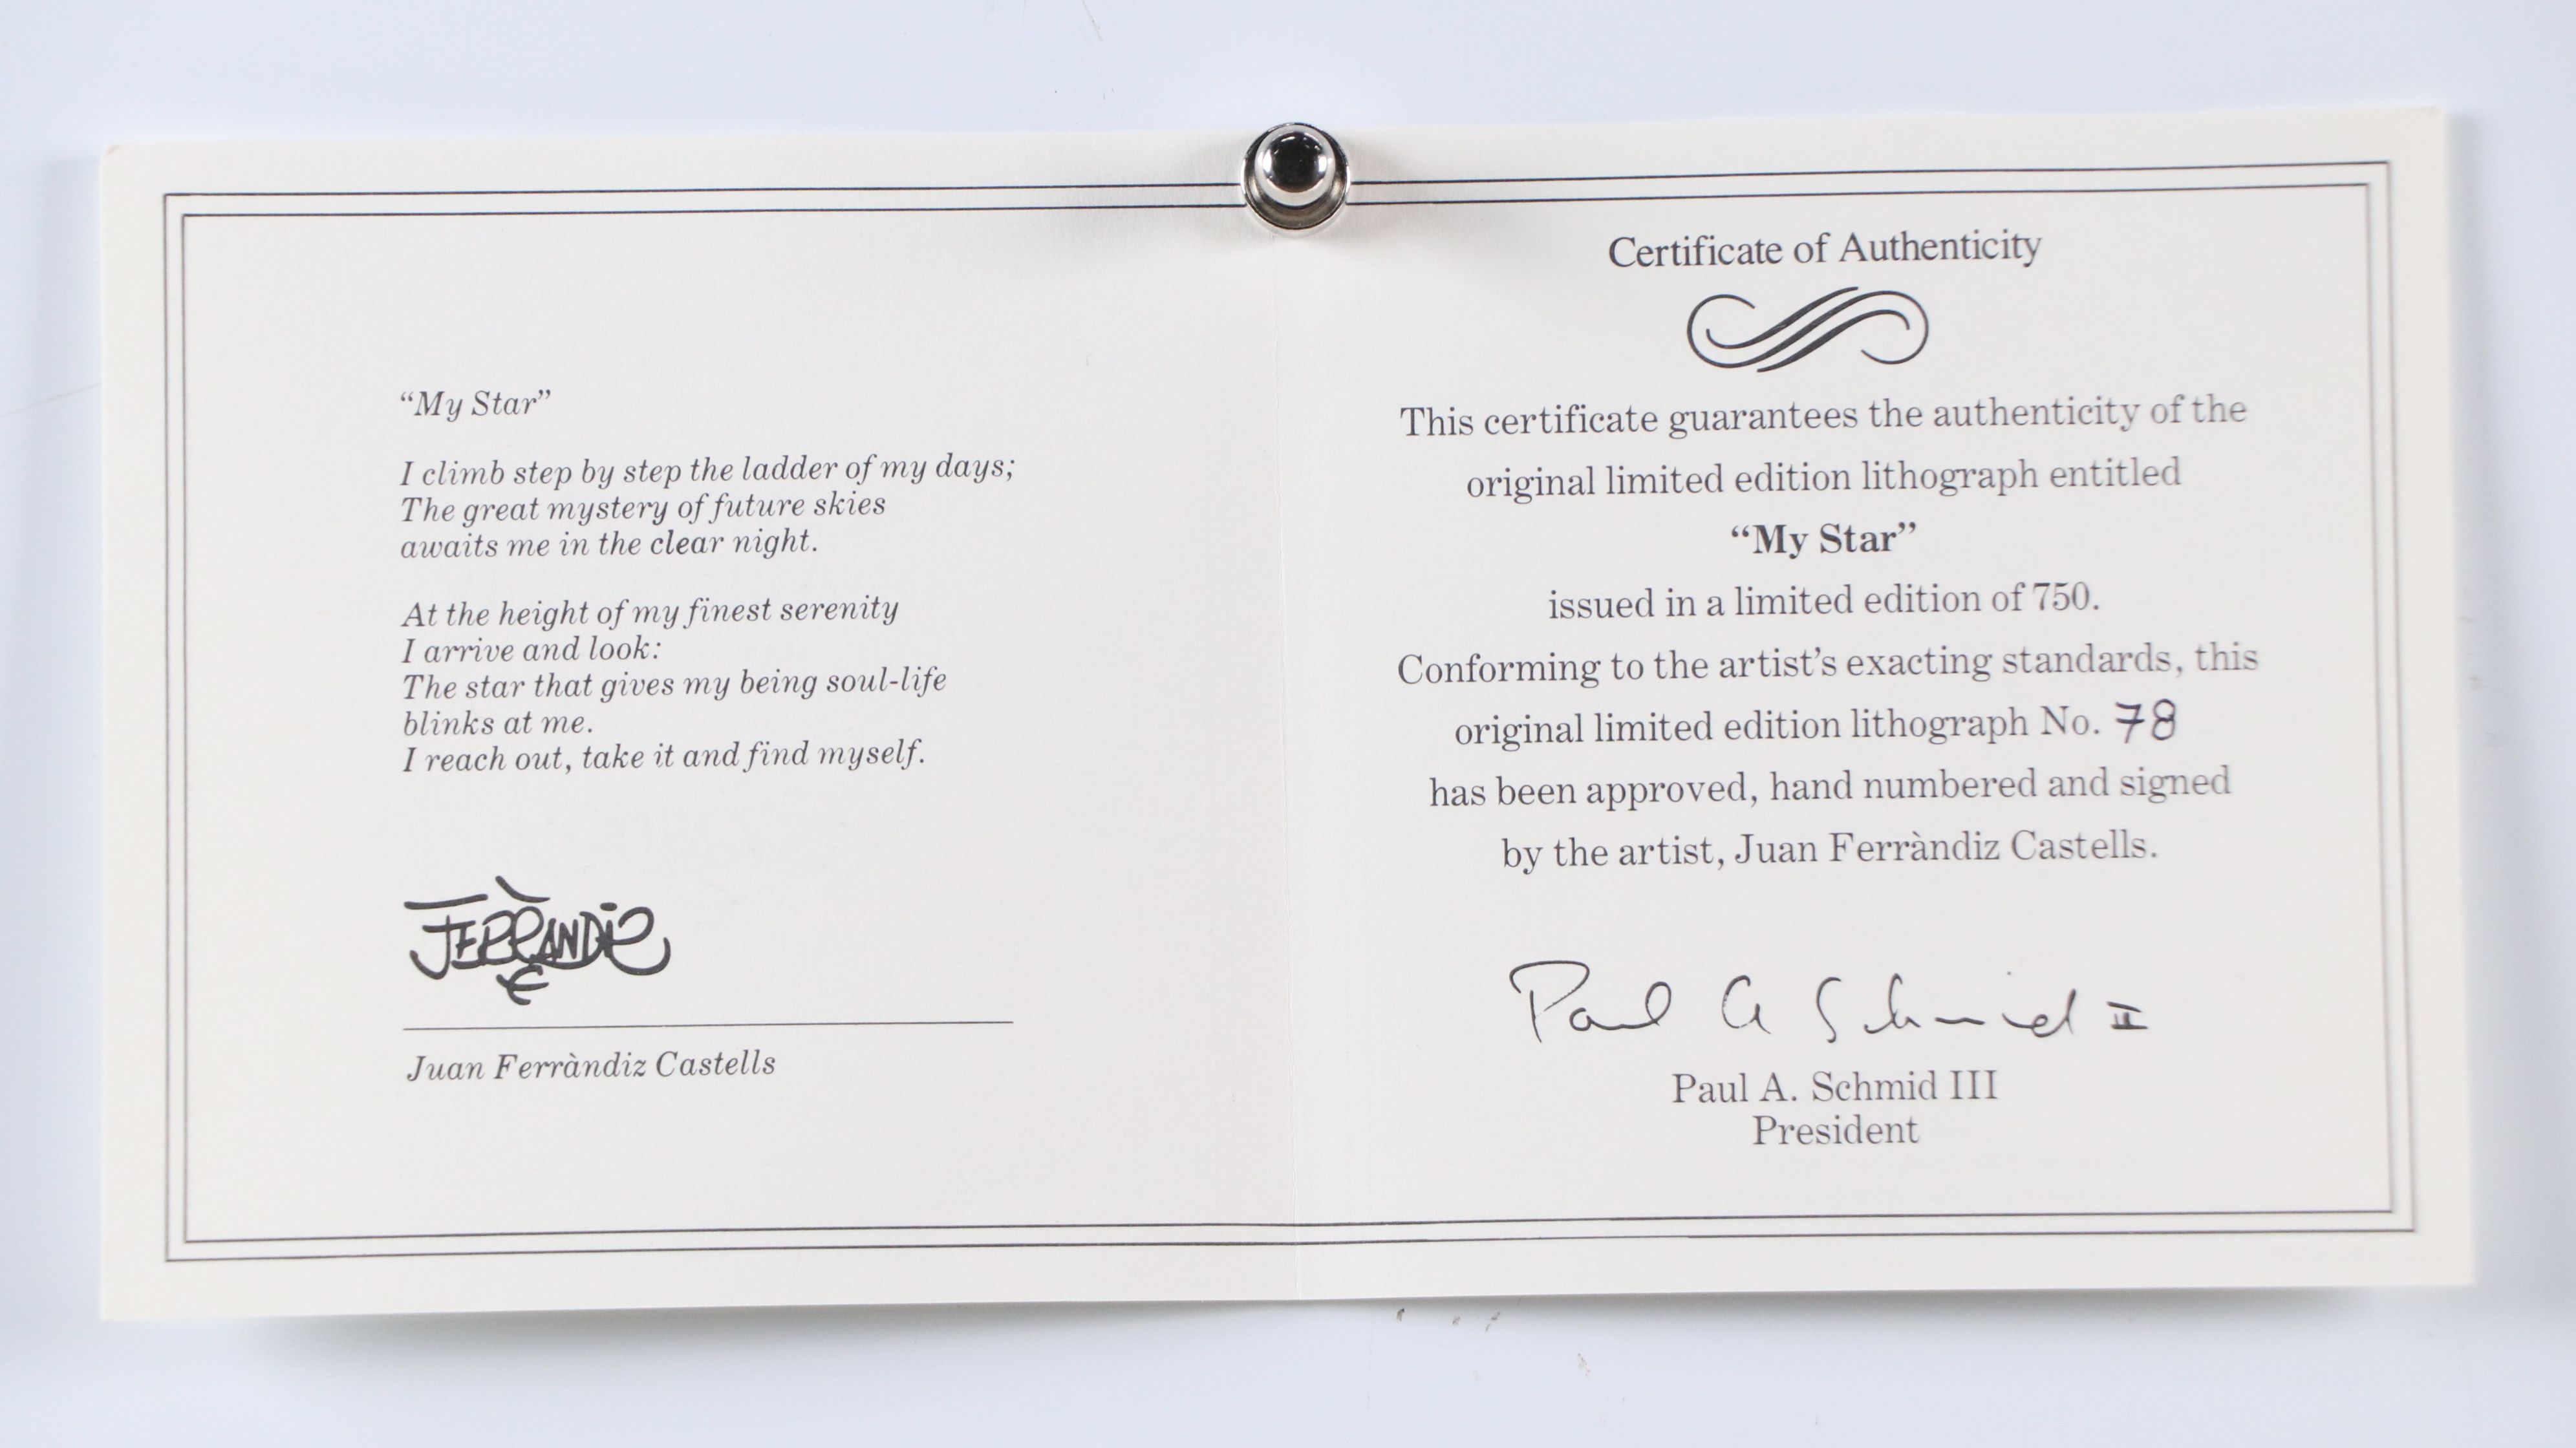 “My Star”
I climb step by step the ladder of my days;
The great mystery of future skies
awaits me in the clear night.
At the height of my finest serenity
I arrive and look:
The star that gives my being soul-life
blinks at me.
I reach out, take it and find myself.
FERRÀNDIZ
C
Juan Ferràndiz Castells
Certificate of Authenticity
This certificate guarantees the authenticity of the
original limited edition lithograph entitled
“My Star”
issued in a limited edition of 750.
Conforming to the artist’s exacting standards, this
original limited edition lithograph No. 78
has been approved, hand numbered and signed
by the artist, Juan Ferràndiz Castells.
Paul A Schmid III
Paul A. Schmid III
President